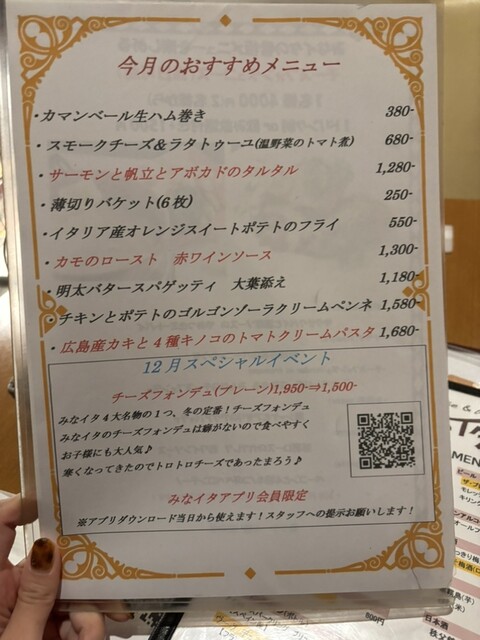 今月のおすすめメニュー
・カマンベール生ハム巻き 380-
・スモークチーズ＆ラタトゥーユ(温野菜のトマト煮) 680-
・サーモンと帆立とアボカドのタルタル 1,280-
・薄切りバケット(6枚) 250-
・イタリア産オレンジスイートポテトのフライ 550-
・カモのロースト 赤ワインソース 1,300-
・明太バタースパゲッティ 大葉添え 1,180-
・チキンとポテトのゴルゴンゾーラクリームペンネ 1,580-
・広島産カキと4種キノコのトマトクリームパスタ 1,680-
12月スペシャルイベント
チーズフォンデュ(プレーン)1,950-⇒1,500-
みなイタ4大名物の1つ、冬の定番！チーズフォンデュ
みなイタのチーズフォンデュは癖がないので食べやすく
お子様にも大人気♪
寒くなってきたのでトロトロチーズであったまろう♪
みなイタアプリ会員限定
※アプリダウンロード当日から使えます！スタッフへの提示お願いします！
MEN
ビール
日本酒
800円